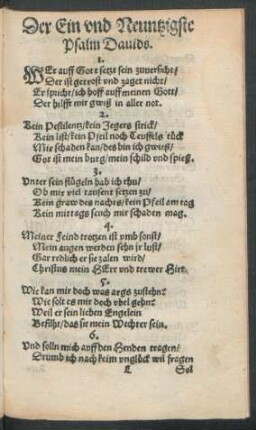 Der Ein vnd Neuntzigste
Psalm Dauids.
1.
WEr auff Gott setzt sein zuuersicht/
Der ist getrost vnd zaget nicht/
Er spricht/ ich hoff auff meinen Gott/
Der hilfft mir gwiß in aller not.
2.
Kein Pestilentz/kein Jegers strick/
Kein list/kein Pfeil noch Teuffels tück
Mir schaden kan/des bin ich gwiß/
Got ist mein burg/mein schild vnd spieß.
3.
Vnter sein flügeln hab ich rhu/
Ob mir viel tausent setzen zu/
Kein graw des nachts/kein Pfeil am tag
Kein mittags seuch mir schaden mag.
4.
Meiner Feind trotzen ist vmb sonst/
Mein augen werden sehn jr lust/
Gar redlich er sie zalen wird/
Christus mein HErr vnd trewer Hirt.
5.
Wie kan mir doch was args zustehn?
Wie solt es mir doch vbel gehn?
Weil er sein lieben Engelein
Befiht/das sie mein Wechter sein.
6.
Vnd solln mich auff den Henden tragen/
Drumb ich nach keim vnglück wil fragen
Sol